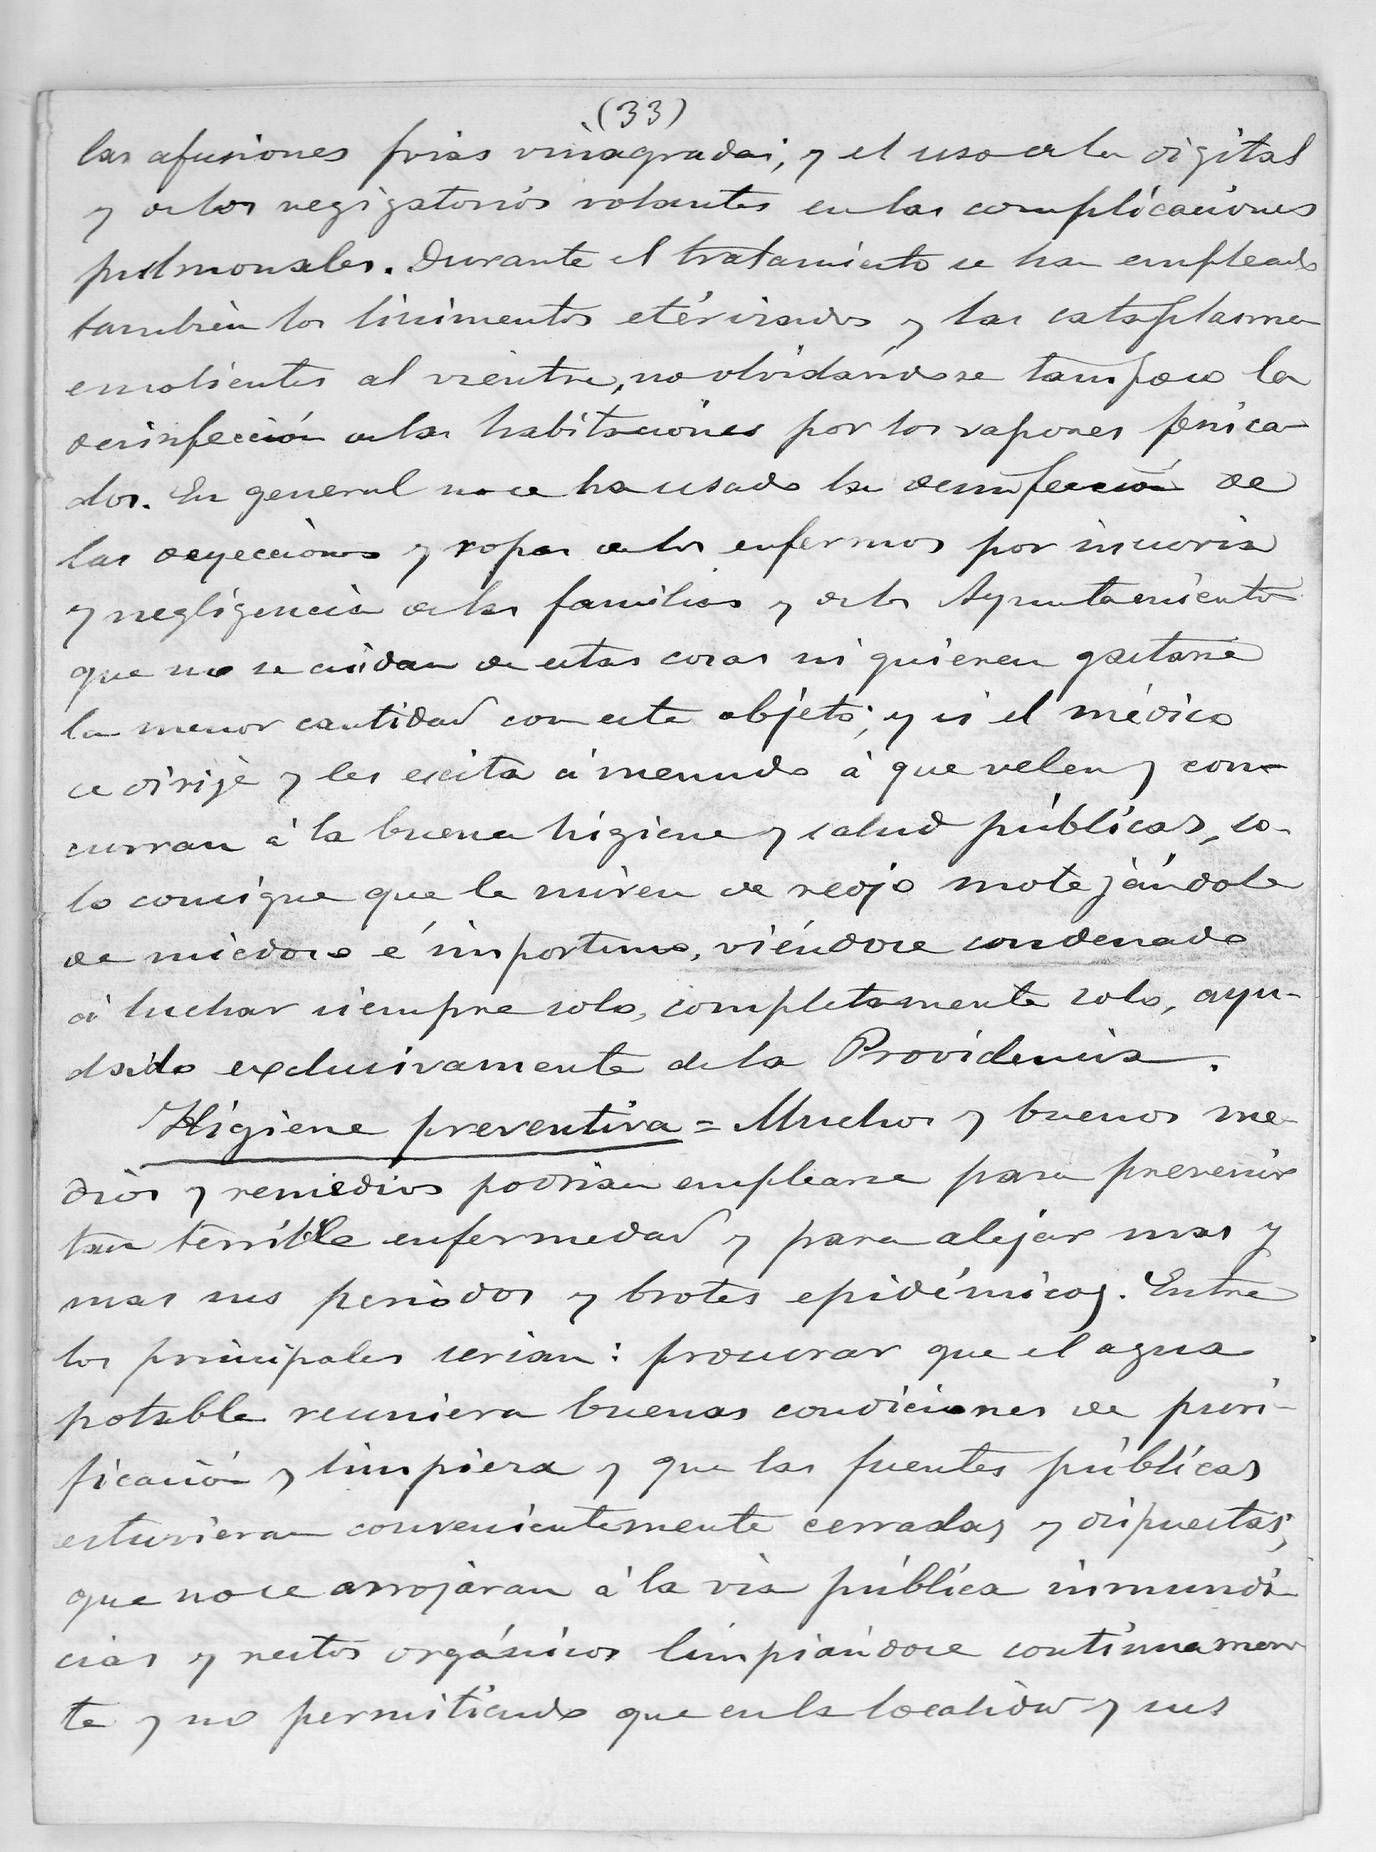 (33)
las afusiones frias vinagradas; y el uso de la digital
y de los vegigatorios volantes en las complicaciones
pulmonales. Durante el tratamiento se ha empleado
tambien los linimentos eterizados y las cataplasmas
emolientes al vientre, no olvidándose tampoco la
desinfección de las habitaciones por los vapores fenica-
dos. En general no se ha usado la desinfección de
las deyecciones y ropas de los enfermos por incuria
y negligencia de las familias y de los Ayuntamientos
que no se cuidan de estas cosas ni quieren gastarse
la menor cantidad con este objeto; y si el médico
se dirije y les escita á menudo á que velen y con-
curran á la buena higiene y salud públicas, so-
lo consigue que le miren de reojo motejándole
de miedoso é importuno, viéndose condenado
á luchar siempre solo, completamente solo, ayu-
dado exclusivamente de la Providencia.
Higiene preventiva = Muchos y buenos me-
dios y remedios podrian emplearse para prevenir
tan terrible enfermedad y para alejar mas y
mas sus periodos y brotes epidémicos. Entre
los principales serian: procurar que el agua
potable reuniera buenas condiciones de puri-
ficación y limpieza y que las fuentes públicas
estuvieran convenientemente cerradas y dispuestas;
que no se arrojáran á la via pública inmundi-
cias y restos orgánicos limpiándose continuamen-
te y no permitiendo que en la localidad y sus